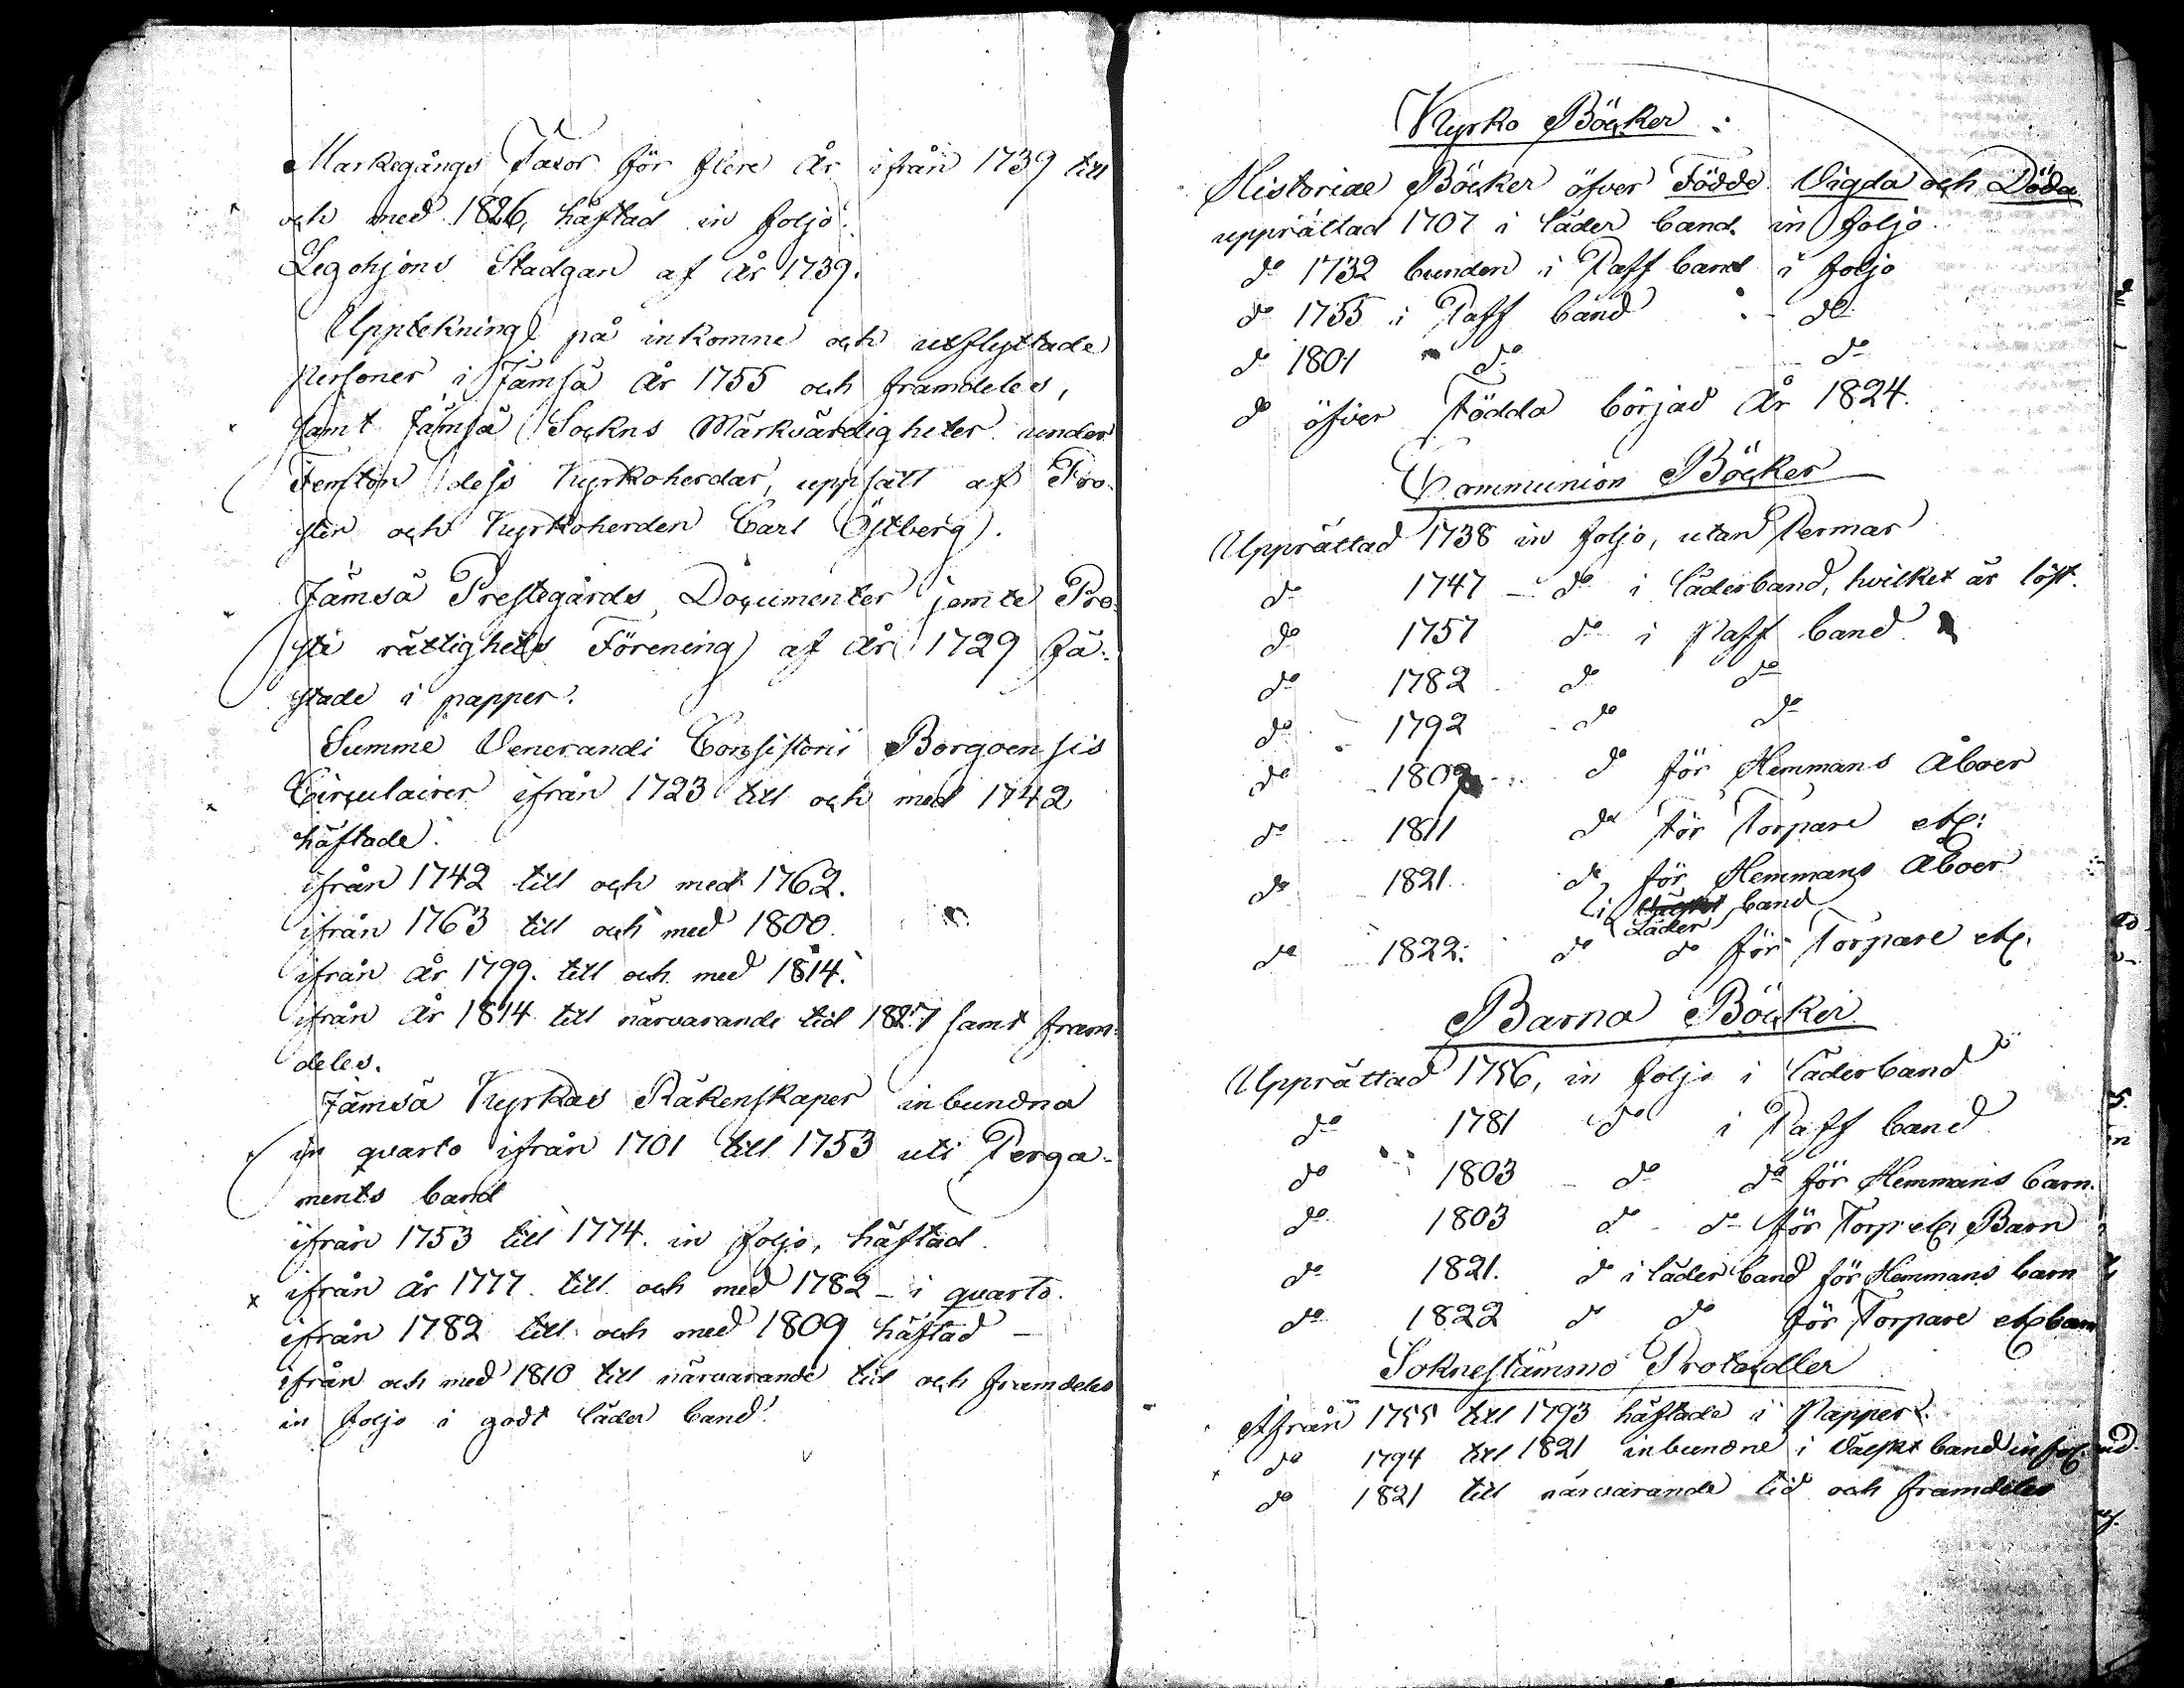 Markegångs Taxor för flere År ifrån 1739 till
och med 1826, häftad in foljo.
Legohjons Stadgan af År 1739.
Upptekning på inkomne och utflyttade
personer i Jämsä År 1755 och framdeles,
samt Jämsä Sockns Märkvärdigheter under
Femton dess Kyrkoherdar, uppsatt af Pro-
sten och Kyrkoherden Carl Östberg.
Jämsä Prestegårds Documenter jemte Pre-
ste rättighets Förening af År 1729 fä-
stade i papper.
Summe Venerandi Consistorii Borgoensis
Circulairer ifrån 1723 till och med 1742
häftade.
ifrån 1742 till och med 1762.
ifrån 1763 till och med 1800.
ifrån År 1799. till och med 1814.
ifrån År 1814 till närvarande tid 1827 samt fram-
deles.
Jämsä Kyrkas Räkenskaper inbundna
in quarto ifrån 1701 till 1753 uti Perga-
ments band
ifrån 1753 till 1774. in foljo, häftad.
x ifrån År 1777. till och med 1782 - i quarto.
ifrån 1782 till och med 1809 häftad -
ifrån och med 1810 till närvarande tid och framdeles
in foljo i godt läder band.
Kyrko Böcker:
Historiae Böcker öfver Födde Vigda och Döda
upprättad 1707 i läder band. in foljo.
do 1732 bunden i Paff band i foljo
do 1755 i Paff band do
do 1801 do do
do öfver Födda börjad År 1824.
Communion Böcker
Upprättad 1738 in foljo, utan Permar
do 1747 - do i läderband, hvilket är löst.
do 1757 do i Paff band
do 1782 do do
do 1792 do do
do 1802 do för Hemmans Åboer
do 1811 do för Torpare etc:
do 1821. do för Hemmans Åboer
i band
Läder
do 1822: do do för Torpare etc.
Barna Böcker
Upprättad 1756, in foljo i läderband
do 1781 do i Paff band
do 1803 do do för Hemmans barn.
do 1803 do do för Torp etc. Barn
do 1821. do i läder band för Hemmans barn
do 1822 do do för Torpare etc barn
Soknestämmo Protocoller
Ifrån 1755 till 1793 häftade i Papper.
do 1794 till 1821 inbundne i band in fol.
do 1821 till närvarande tid och framdeles